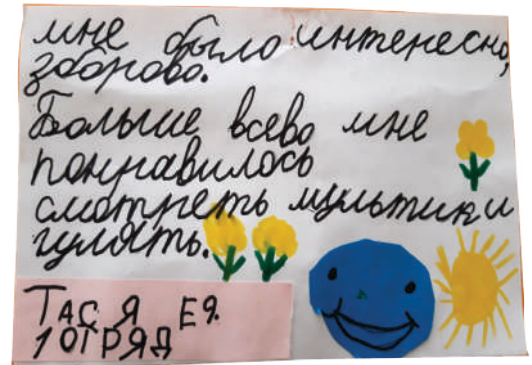 мне было интересно,
здорово.
Больше всево мне
понравилось
смотреть мультики и
гулять.
ТАСЯ Е Я.
1 ОТРЯД